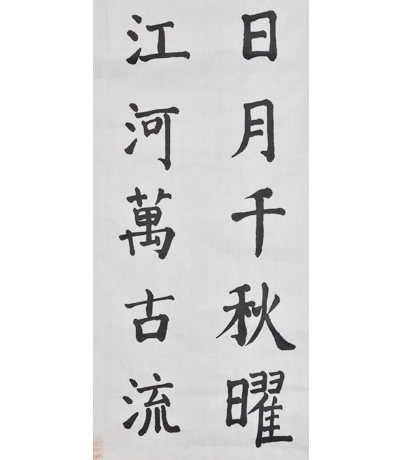 日月千秋曜
江河萬古流